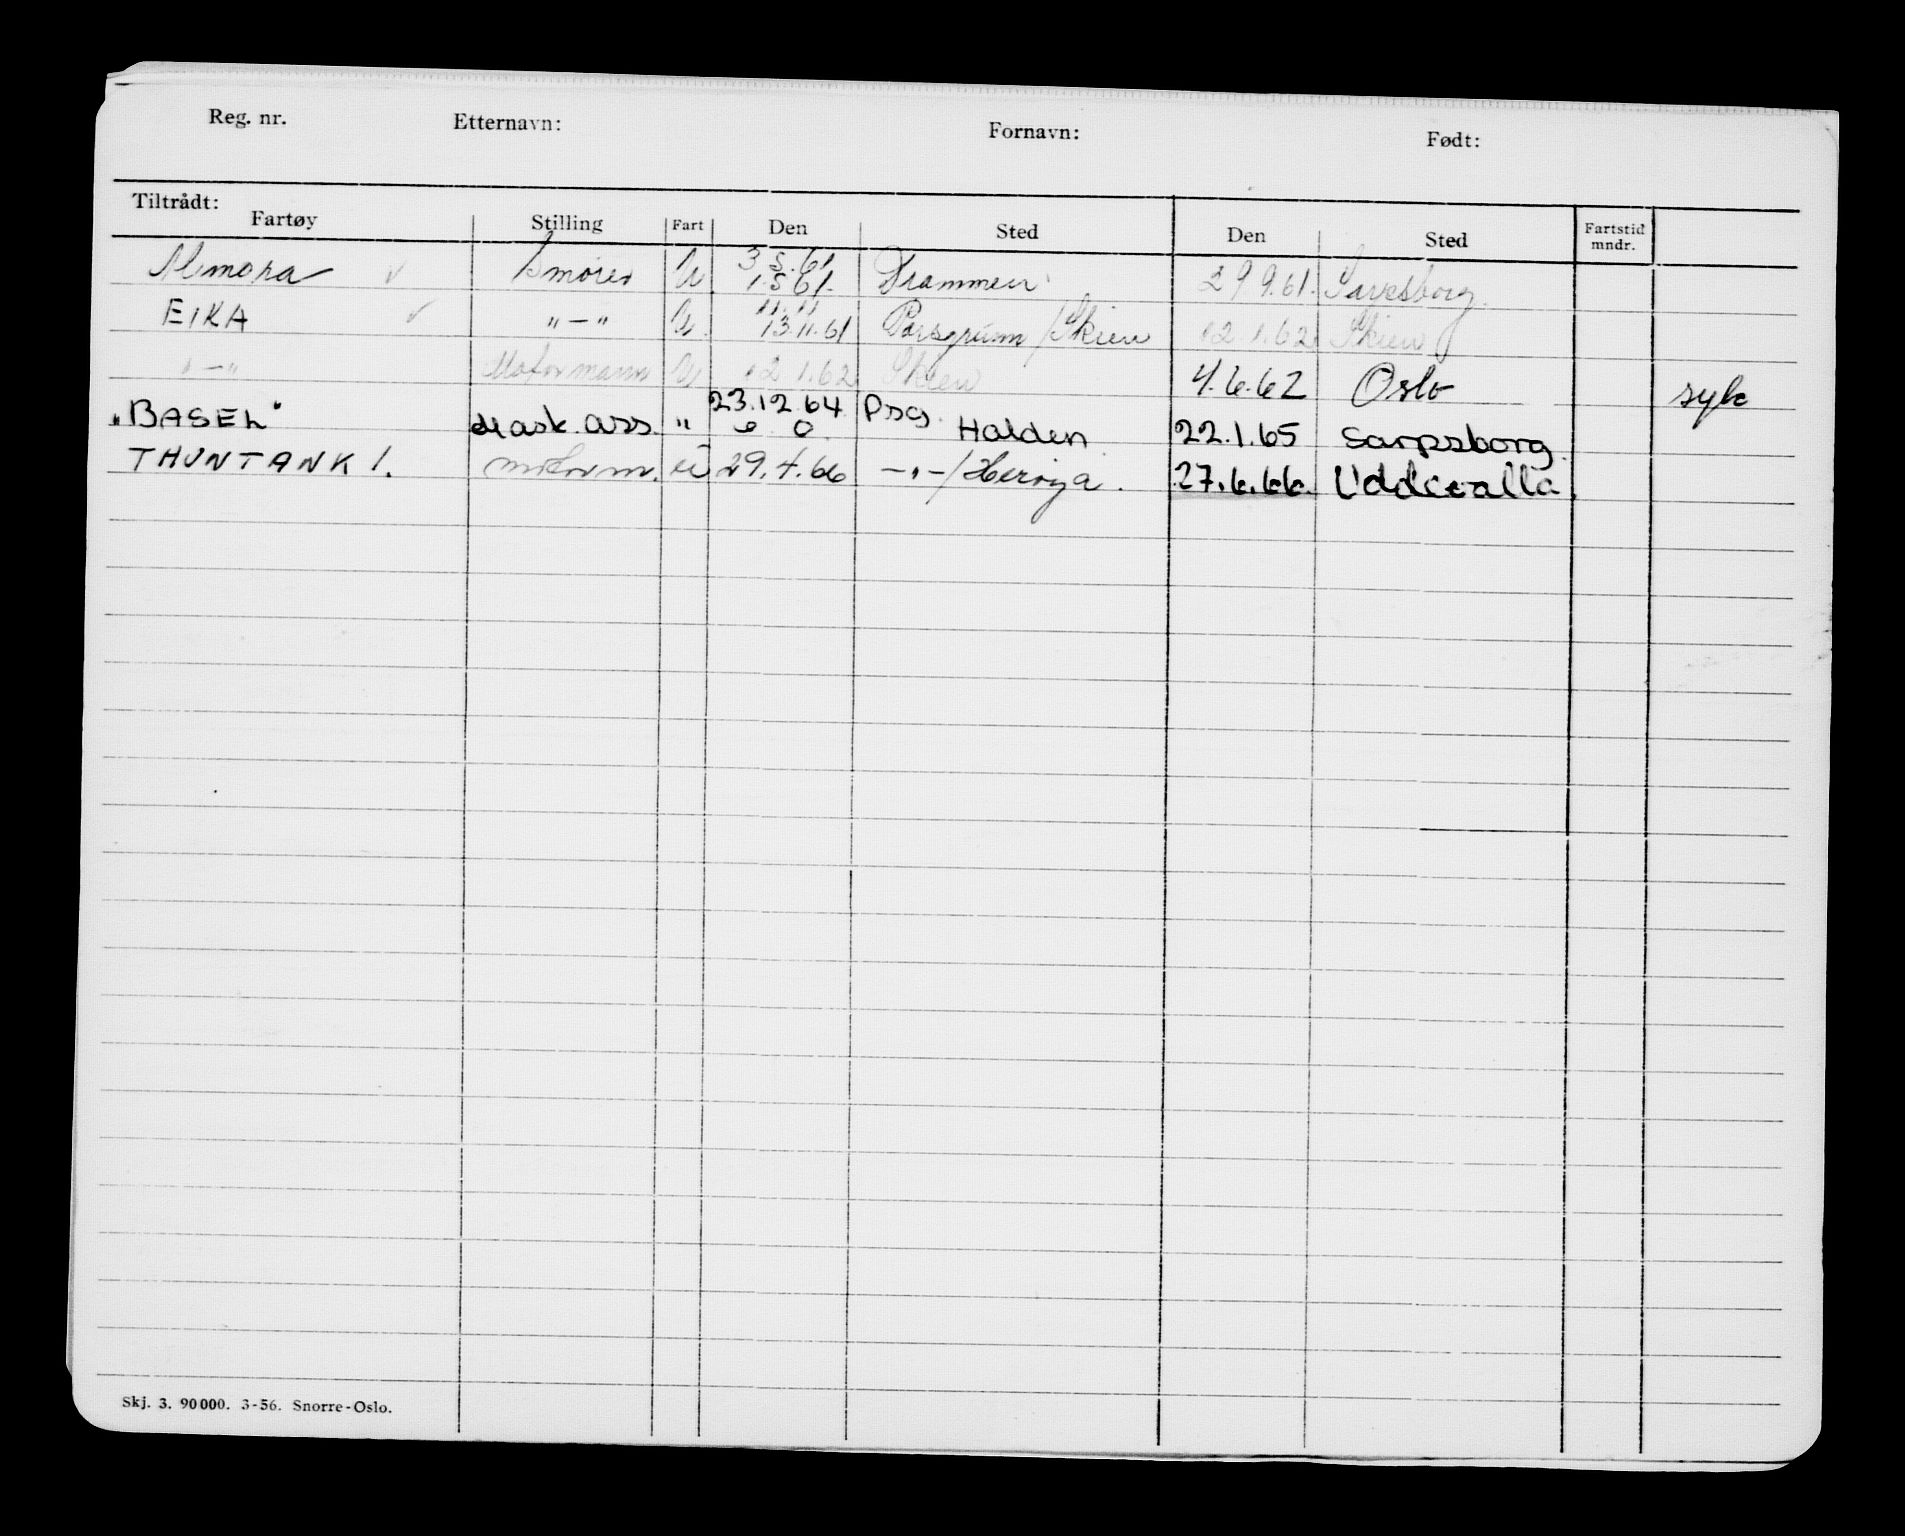 Reg. nr. Etternavn: Fornavn: Født:
Tiltrådt:
Fartøy Stilling Fart Den Sted Den Sted Fartstid mndr.
3.5.61
Almora ✓ Smører U 1.5.61. Drammen 29.9.61. Sarpsborg.
11.11
EIKA ✓ "—" U. 13.11.61 Porsgrunn/Skien 12.1.62 Skien
"—" Motormann U 12.1.62 Skien 4.6.62 Oslo syk
23.12.64 Psg.
"BASEL" Mask. ass. " Halden 22.1.65 Sarpsborg.
THUNTANK 1. motorm. U 29.4.66 —"—/Herøya. 27.6.66. Uddevalla
Skj. 3. 90000. 3-56. Snorre-Oslo.